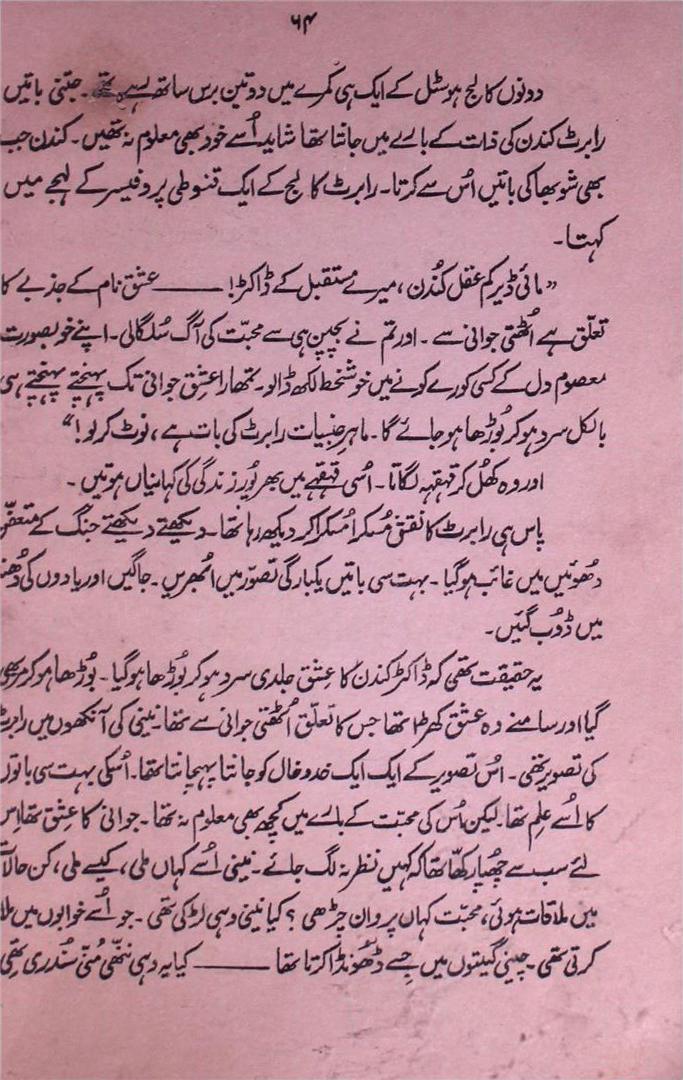 ۶۴
دونوں کالج ہوسٹل کے ایک ہی کمرے میں دو تین برس ساتھ رہے تھے۔ جتنی باتیں
رابرٹ کندن کی ذات کے بارے میں جانتا تھا شاید اُسے خود بھی معلوم نہ تھیں۔ کندن جب
بھی شوبھا کی باتیں اُس سے کرتا۔ رابرٹ کالج کے ایک قنوطی پروفیسر کے لہجے میں
کہتا۔
”مائی ڈیر کم عقل کُندن، میرے مستقبل کے ڈاکٹر! ——— عشق نام کے جذبے کا
تعلّق ہے اُٹھتی جوانی سے۔ اور تم نے بچپن ہی سے محبّت کی آگ سُلگالی۔ اپنے خوبصورت
معصوم دل کے کسی کورے کونے میں خوشخط لکھ ڈالو۔ تمھارا عشق جوانی تک پہنچتے پہنچتے ہی
بالکل سرد ہو کر بُوڑھا ہو جائے گا۔ ماہرِ جنسیات رابرٹ کی بات ہے، نوٹ کر لو!“
اور وہ کھُل کر قہقہہ لگاتا۔ اُسی قہقہے میں بھر پُور زندگی کی کہانیاں ہوتیں۔
پاس ہی رابرٹ کا نقش مُسکرا مُسکرا کر دیکھ رہا تھا۔ دیکھتے دیکھتے جنگ کے متعفّن
دھُوئیں میں غائب ہو گیا۔ بہت سی باتیں یکبارگی تصوّر میں اُبھریں۔ جاگیں اور یادوں کی دُھند
میں ڈُوب گئیں۔
یہ حقیقت تھی کہ ڈاکٹر کندن کا عِشق جلدی سرد ہو کر بُوڑھا ہو گیا۔ بُوڑھا ہو کر مر بھی
گیا اور سامنے وہ عشق کھڑا تھا جس کا تعلّق اُٹھتی جوانی سے تھا۔ نینی کی آنکھوں میں رابرٹ
کی تصویر تھی۔ اس تصویر کے ایک ایک خدوخال کو جانتا پہچانتا تھا۔ اُسکی بہت سی باتوں
کا اُسے علِم تھا۔ لیکن اُس کی محبّت کے بارے میں کچھ بھی معلوم نہ تھا۔ جوانی کا عِشق تھا اِس
لئے سب سے چھُپا رکھّا تھا کہ کہیں نظر نہ لگ جائے۔ نینی اُسے کہاں ملی، کیسے ملی، کن حالات
میں ملاقات ہوئی، محبّت کہاں پروان چڑھی؟ کیا نینی وہی لڑکی تھی۔ جو اُسے خوابوں میں ملا
کرتی تھی۔ چینی گیتوں میں جِسے ڈھُونڈا کرتا تھا ——— کیا یہ وہی ننھّی مُنّی سُندری تھی